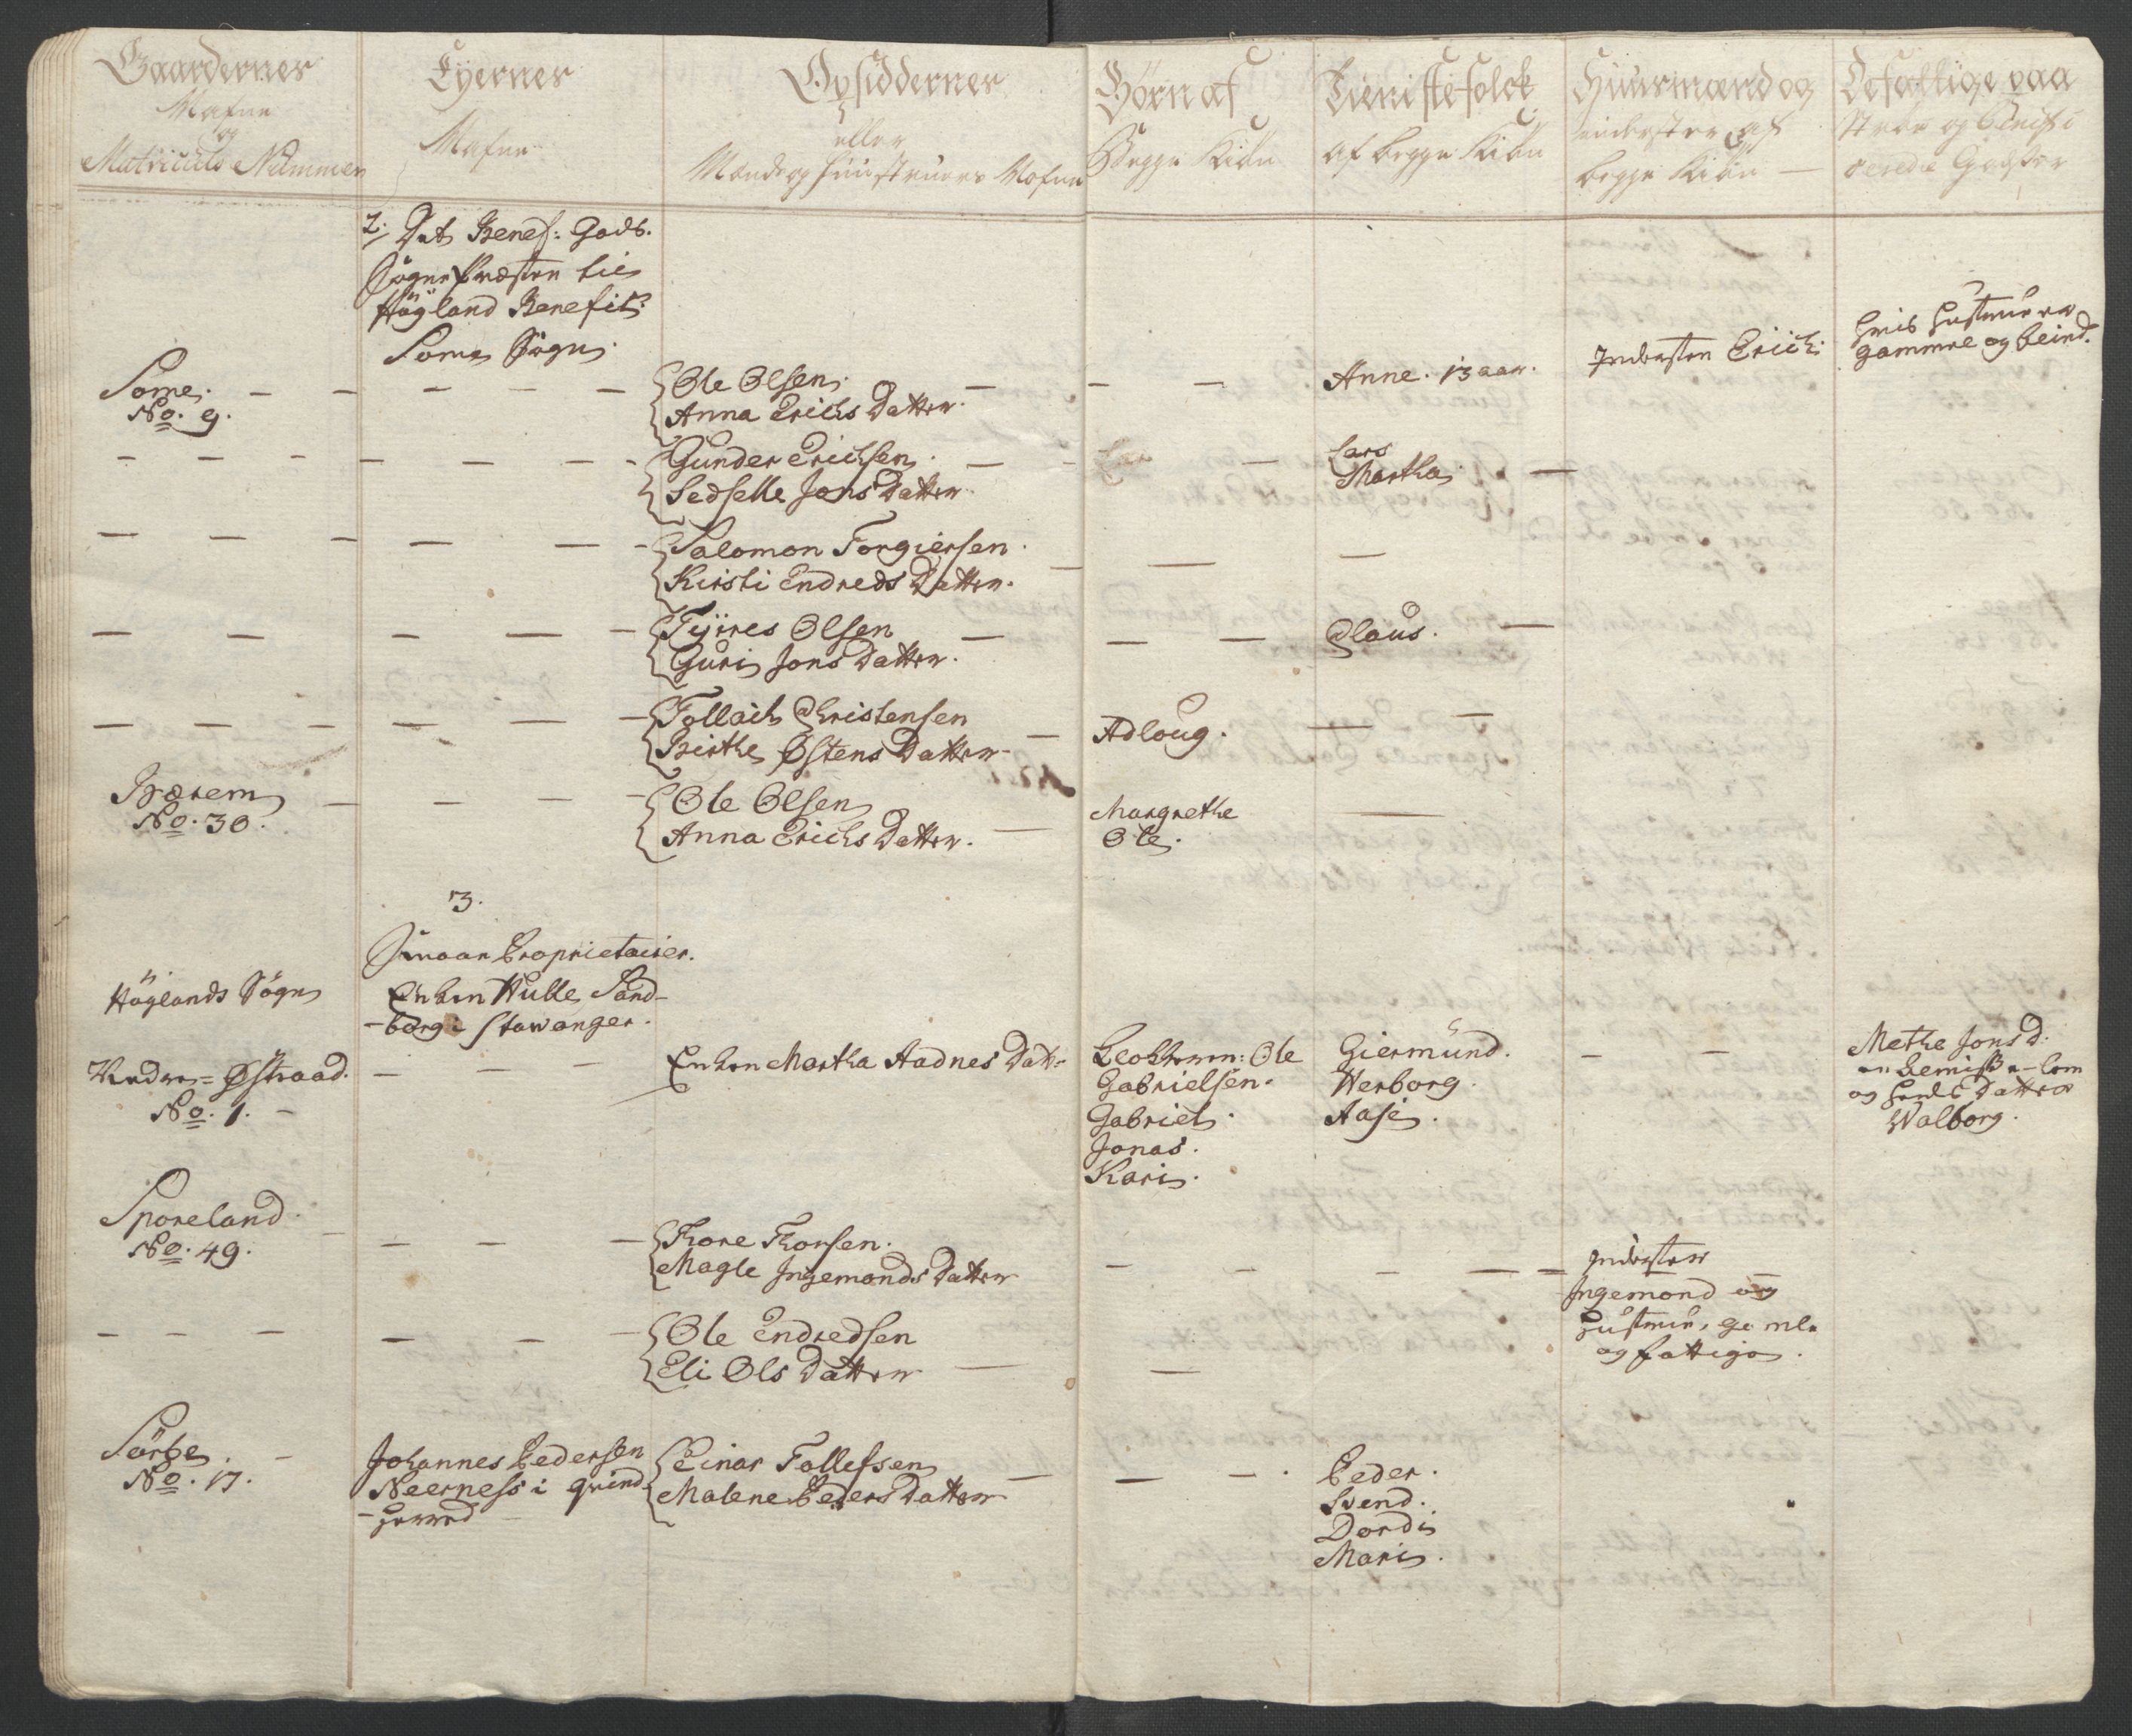 Gaardernes
Nafne
og
Matriculs Nummer
Eyernes
Nafne
Opsiddernes
eller
Mands og Huustruers Nafne
Börn af
Begge Kiön
Tieniste-folck
af begge Kiön
Huusmænd og
inderster af
begge Kiön
De fattige paa
2. Det Benef: Gods.
Sogne Præsten til
Högland Benefit:
Some Sogn.
Some.
No. 9.
Ole Olsen.
Anna Erichs Datter.
Anne. 13 aar.
Indersten Erich:
Hvis Hustrue er
gammel og blind.
Gunder Erichsen
Sedselle Jons Datter
Lars
Martha
Salomon Torgiersen.
Kirsti Endreds Datter.
Tyires Olsen
Guri Jons Datter.
Claus.
Tollach Christensen
Birthe Østens Datter
Adloug.
Bærem
No. 30.
Ole Olsen
Anna Erichs Datter.
Margrethe
Ole.
3.
Smaae Proprietairer.
Höglands Sogn
Enken Hulle Sand-
-borg i Stavanger.
Nedre-Østraad.
No. 1.
Enken Martha Aadnes Datt-
Ole
Gabrielsen.
Gabriel.
Jonas.
Kari.
Giermund.
Herborg.
Aase.
Methe Jons D.
og Hendes Datter
Walborg.
Sporeland.
No. 49.
Thore Thorsen.
Magle Ingemonds Datter
Inderster
Ingemond og
Hustrue, gamle
og fattige.
Ole Endredsen
Eli Ols Datter
Sörbe.
No. 17.
Johannes Pedersen
Neerness i Qvind-
-Herred
Einar Tollefsen
Malene Peders Datter
Peder.
Svend.
Dordi
Mari.